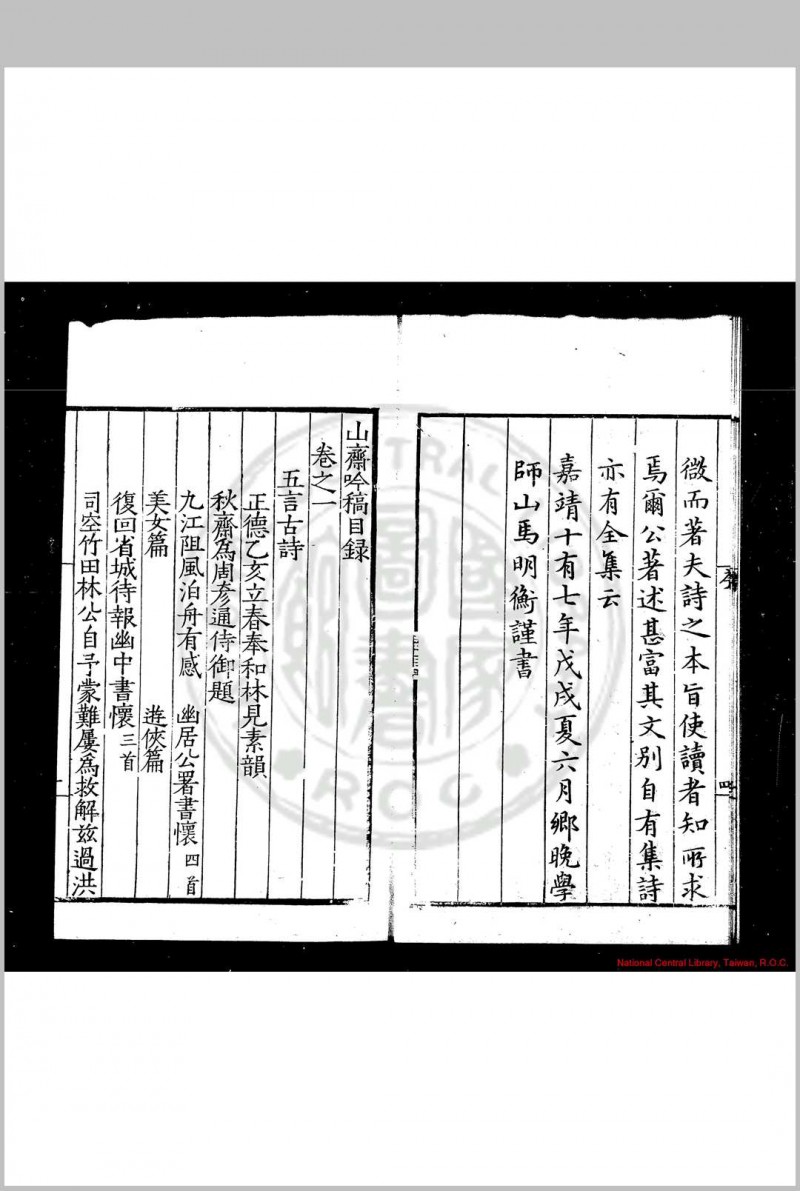 微而著夫詩之本旨使讀者知所求
焉爾公著述甚富其文别自有集詩
亦有全集云
嘉靖十有七年戊戌夏六月鄉晚學
師山馬明衡謹書
山齋吟稿目録
卷之一
五言古詩
正德乙亥立春奉和林見素韻
秋齋爲周彦通侍御題
九江阻風泊舟有感 幽居公署書懷四首
美女篇 遊俠篇
復回省城待報幽中書懷三首
司空竹田林公自予蒙難屡爲救解兹過洪
序
四
National Central Library, Taiwan, R.O.C.